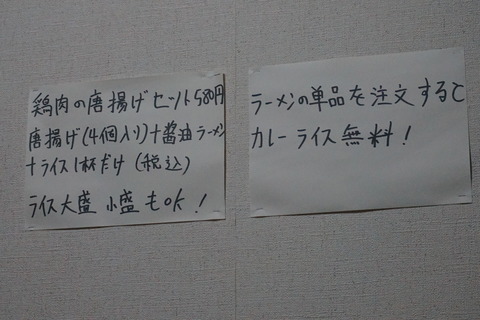 鶏肉の唐揚げセット580円
唐揚げ(4個入り)+醤油ラーメン
+ライス1杯だけ(税込)
ライス大盛 小盛もOK!
ラーメンの単品を注文すると
カレーライス無料!